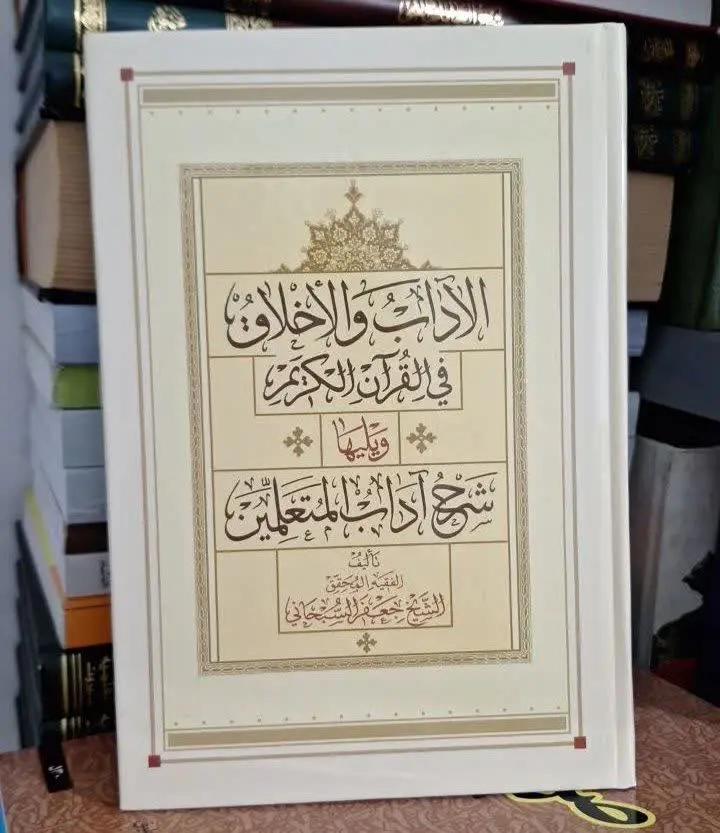 الآداب والأخلاق
في القرآن الكريم
ويليها
شرح آداب المتعلمين
تأليف
الفقيه المحقق
الشيخ جعفر السبحاني